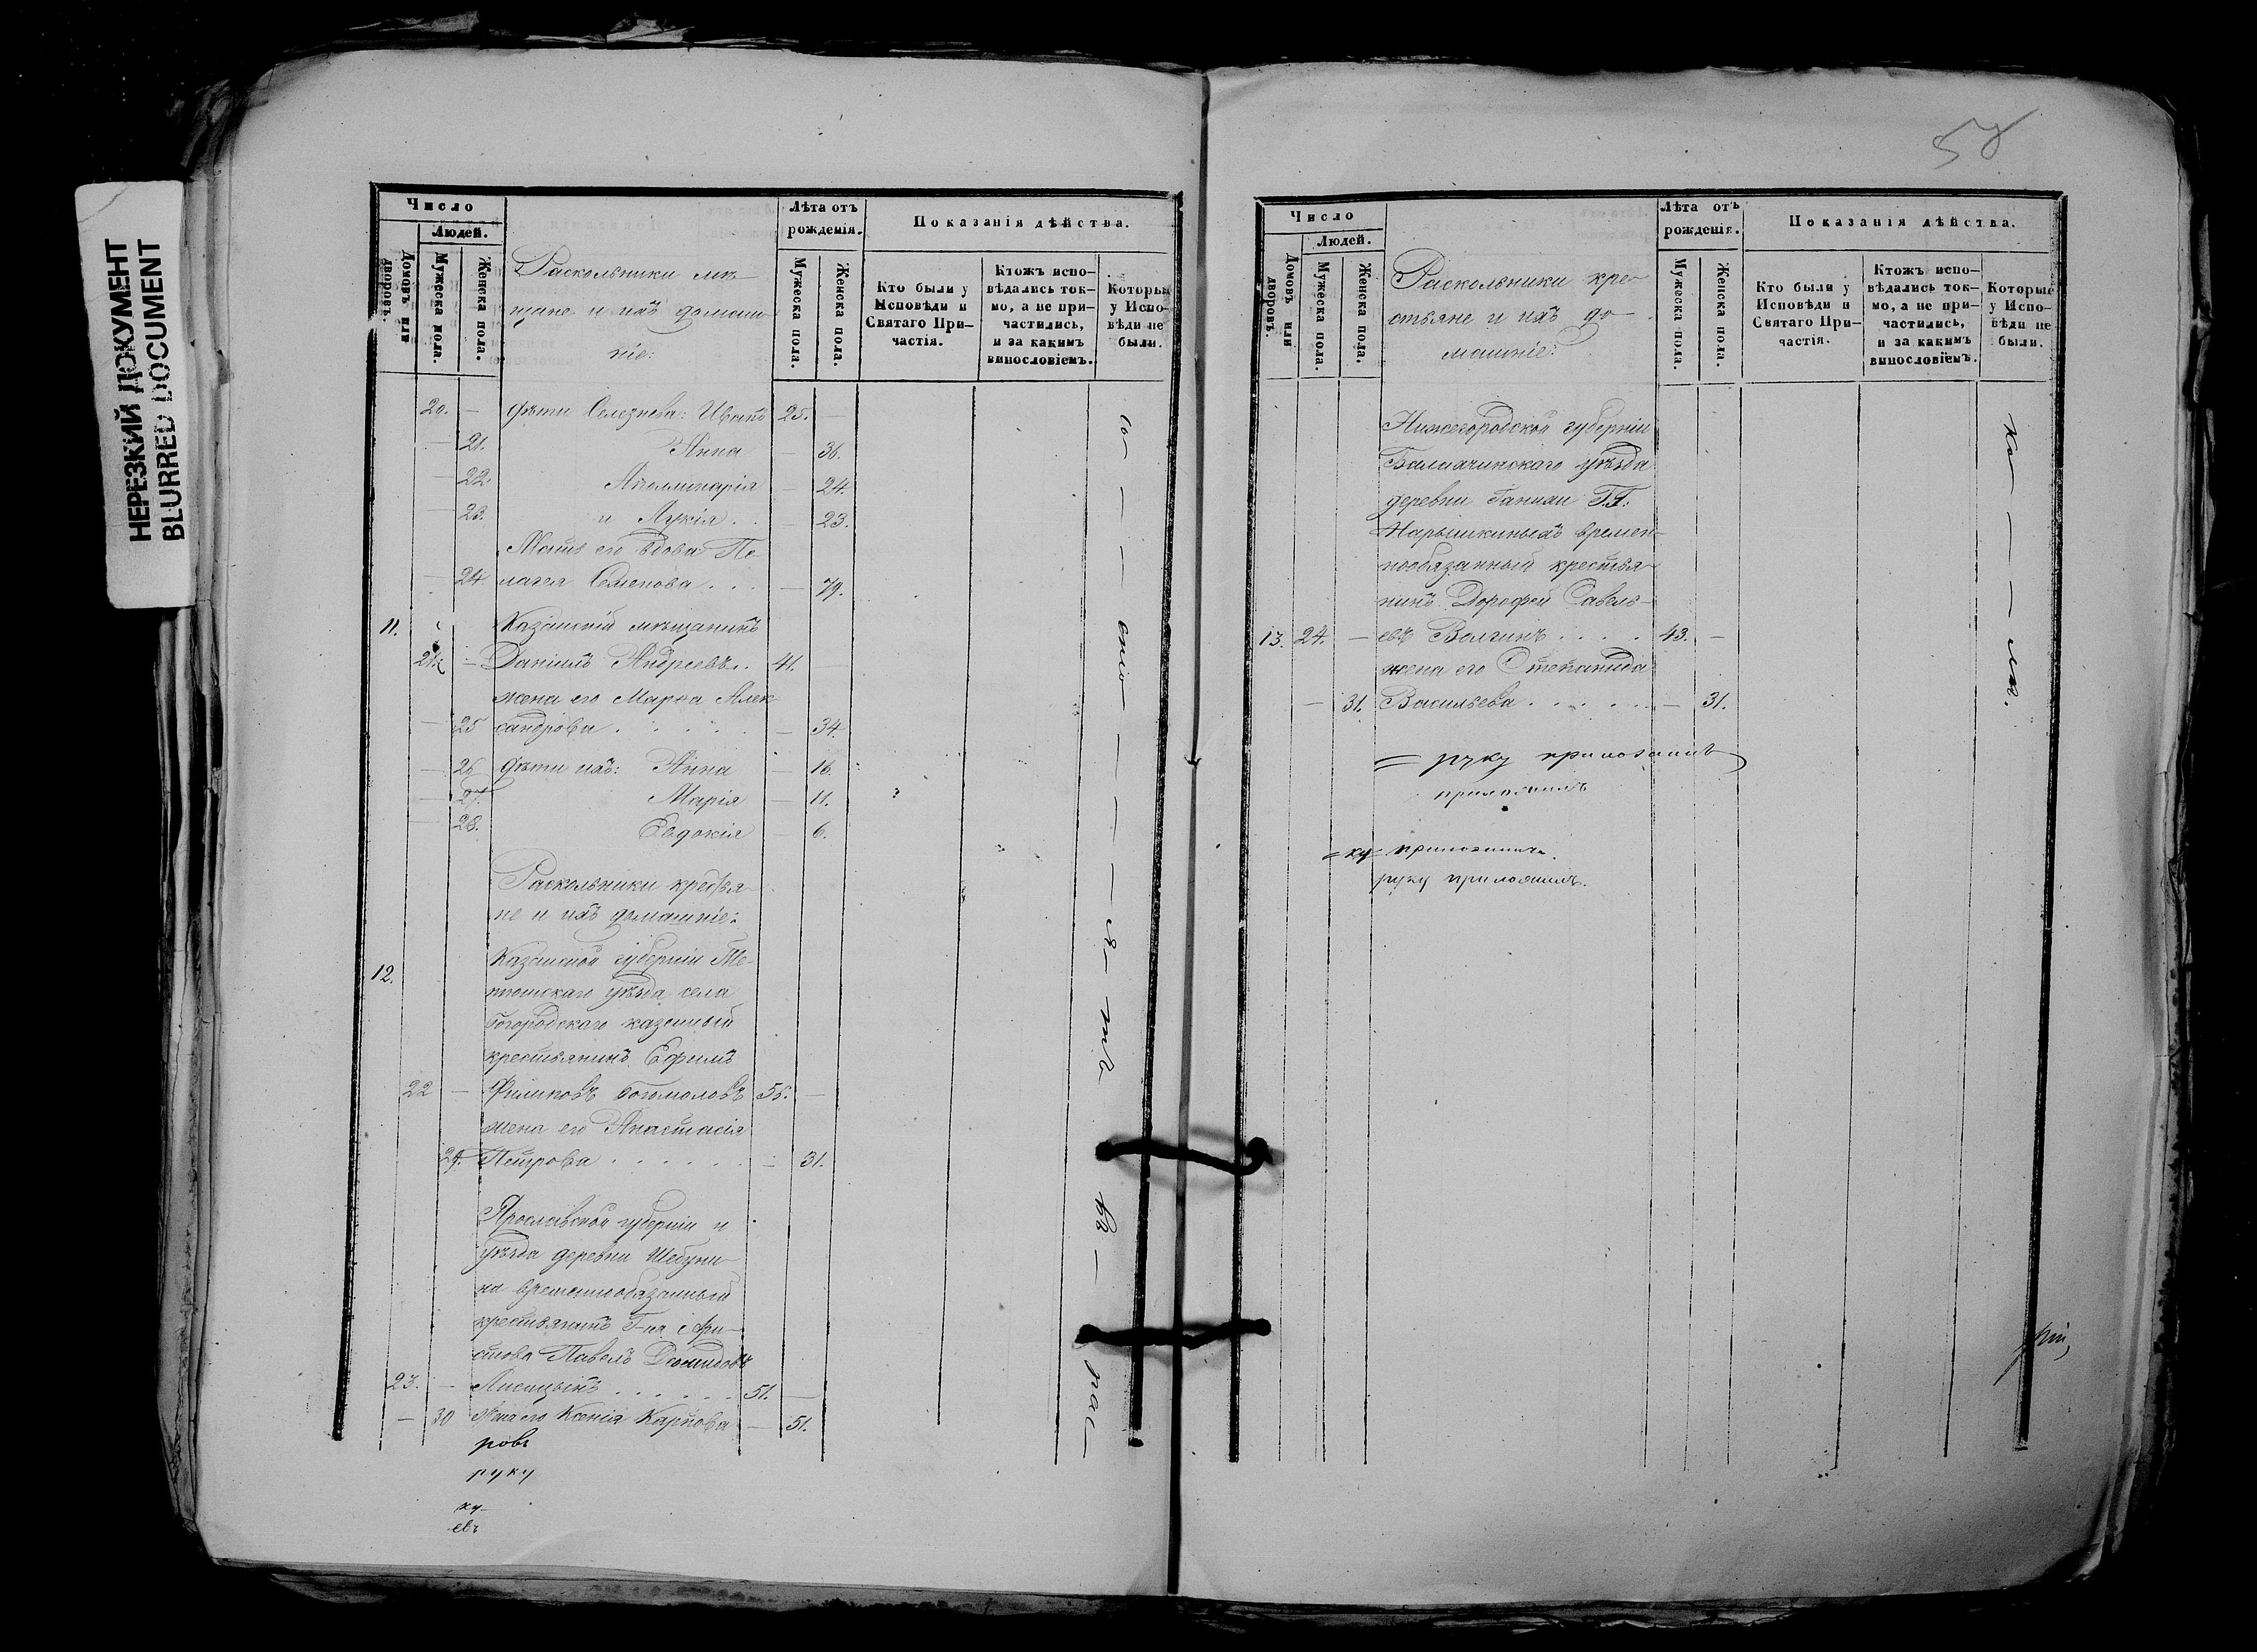 НЕРЕЗКИЙ ДОКУМЕНТ
BLURRED DOCUMENT
Число
Людей.
Домовъ или дворовъ.
Мужеска пола.
Женска пола.
Раскольники мѣ-
щане и ихъ домаш-
ніе:
Лѣта отъ
рожденія.
Мужеска пола.
Женска пола.
Показанія дѣйства.
Кто были у
Исповѣди и
Святаго При-
частія.
Ктожъ испо-
вѣдались ток-
мо, а не при-
частились,
и за какимъ
винословіемъ.
Которые
у Испо-
вѣди не
были.
20. — дѣти Селезнева: Иванъ 25. —
— 21. Анна — 36.
— 22. Апполинарія — 24.
— 23. и Лукія . . — 23.
Мать его вдова Пе
— 24 лагея Семенова . . . — 79.
11. Казанскій мѣщанинъ
21. — Даніилъ Андреевъ. . 41. —
жена его Марѳа Алек-
— 25 сандрова . . . . . — 34.
— 26 дѣти ихъ: Анна — 16.
— 27. Марія — 11.
— 28. Евдокія — 6.
Раскольники крестья-
не и ихъ домашніе:
12. Казанской губерніи Те-
тюшскаго уѣзда села
Богородскаго казенный
крестьянинъ Ефимъ
22 — Филиповъ Богомоловъ 56. —
жена его Анастасія
29. Петрова . . . . . . — 31.
Ярославской губерніи и
уѣзда деревни
на временнообязанный
крестьянинъ Г-на Ари-
стова Павелъ
23. — Лисицынъ . . . . . . 51. —
— 30 Жена его Ксенія Карпова — 51.
ровъ
руку
ку-
евъ
со — — — сто — — — — я — тъ — въ — рас —
58
Число
Людей.
Домовъ или дворовъ.
Мужеска пола.
Женска пола.
Раскольники кре-
стьяне и ихъ до-
машніе:
Лѣта отъ
рожденія.
Мужеска пола.
Женска пола.
Показанія дѣйства.
Кто были у
Исповѣди и
Святаго При-
частія.
Ктожъ испо-
вѣдались ток-
мо, а не при-
частились,
и за какимъ
винословіемъ.
Которые
у Испо-
вѣди не
были.
Нижегородской губерніи
Балахнинскаго уѣзда
деревни
Нарышкиныхъ времен-
нообязанный крестья-
нинъ Дорофей Савель-
13. 24. — евъ Волгинъ . . . . 43. —
жена его Степанида
— 31. Васильева . . . . . . — 31.
= руку приложилъ
приложилъ
= ку приложилъ.
руку приложилъ.
ко — — — — лѣ.